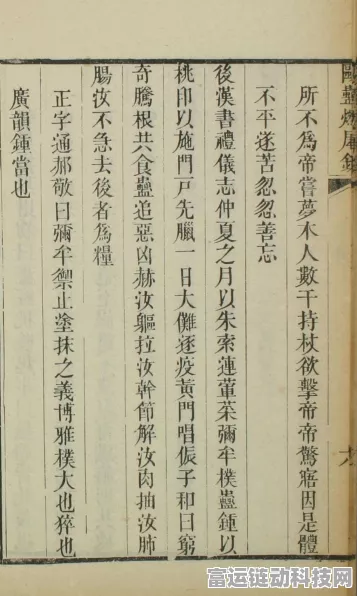 驅蠱燃犀錄
所不爲帝嘗夢木人數千持杖欲擊帝帝驚寤因是體
不平遂苦忽忽善忘
後漢書禮儀志仲夏之月以朱索蓮葷菜彌牟樸蠱鍾以
桃印以施門戸先臘一日大儺逐疫黃門唱侲子和曰窮
奇騰根共食蠱追惡凶赫汝軀拉汝幹節解汝肉抽汝肺
腸汝不急去後者爲糧
正字通郝敬曰彌牟禦止塗抹之義博雅樸大也猝也
廣韻鍾當也
富运链动科技网